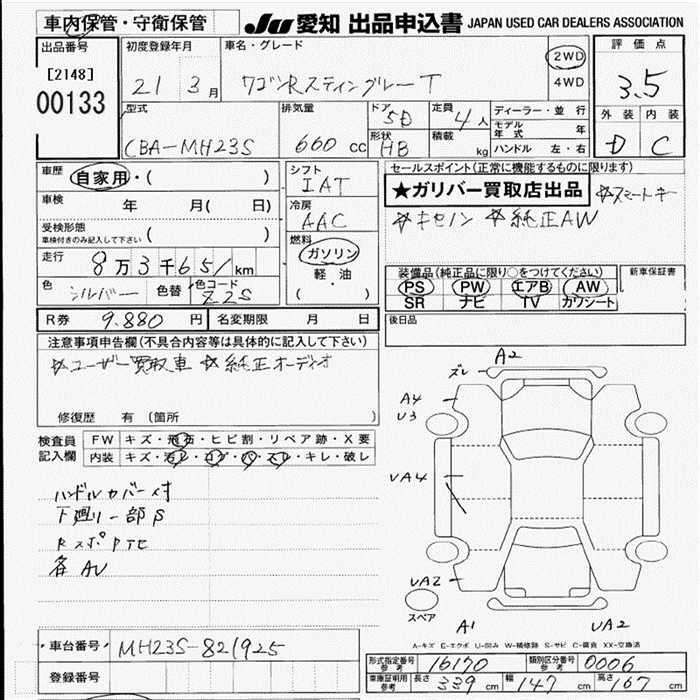 車内保管・守衛保管
JU 愛知 出品申込書 JAPAN USED CAR DEALERS ASSOCIATION
出品番号
[2148]
00133
初度登録年月
21 3月
車名・グレード
ワゴンRスティングレー T
2WD
4WD
評価点
3.5
外装 内装
D C
型式
CBA-MH23S
排気量
660 cc
ドア
5D
形状
HB
定員
4人
積載
kg
ディーラー・並行
モデル年式 年
ハンドル 左・右
車歴
自家用・( )
車検 年 月( 日)
受検形態
車検付きのみ記入して下さい ( )
走行
8万3千651km
色
シルバー
色替
色コード
Z2S
シフト
IAT
冷房
AAC
燃料
ガソリン
軽・油
( )
セールスポイント(正常に機能するものに限ります)
★ガリバー買取店出品 ☆スマートキー
☆キセノン ☆純正AW
装備品(純正品に限り○をつけてください)
PS PW エアB AW
SR ナビ TV カワシート
新車保証書
後日品
R券 9.880円 名変期限 月 日
注意事項申告欄(不具合内容等は具体的に記入して下さい)
☆ユーザー買取車 ☆純正オーディオ
修復歴 有 (箇所 )
検査員記入欄
FW キズ・飛石・ヒビ割・リペア跡・X要
内装 キズ・汚レ・コゲ・穴・スレ・キレ・破レ
ハンドルカバー付
下廻り一部S
各AU
ズレ
A2
A4
U3
UA4
UA2
スペア
A1
UA2
A-キズ E-エクボ U-凹み W-補修跡 S-サビ C-腐食 XX-交換済
車台番号 MH23S-821925
登録番号
型式指定番号参考 16170
類別区分番号参考 0006
車庫証明用参考 長さ 339cm 幅 147cm 高さ 167cm